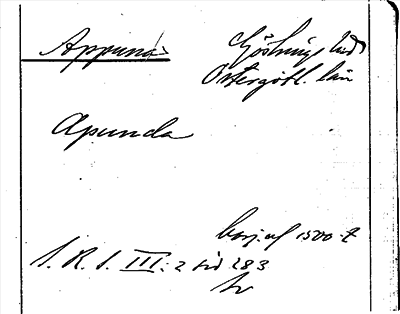 Appuna Göstrings hd
Östergötl. län
Apunda
börj. af 1500-t
S. R. S. III: 2 sid 283